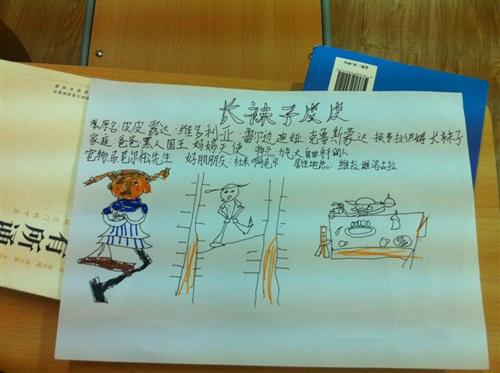 长袜子皮皮
原名:皮皮露达·维多利亚·鲁尔迪娅·克鲁斯蒙达·埃弗拉伊姆 长袜子
家庭:爸爸黑人国王 妈妈天使 特点:力气大自由
宠物:马 尼尔松先生 好朋友:杜米 阿尼卡 居住地点:维拉 维洛古拉
有所谓